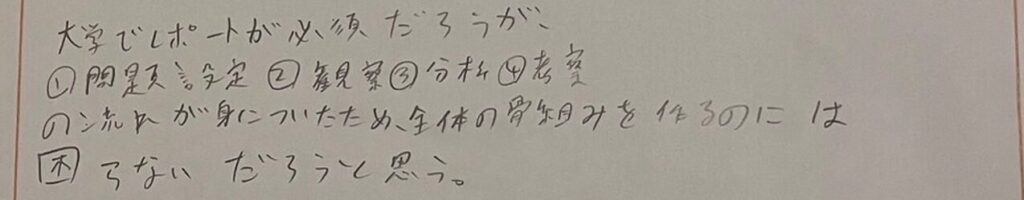 大学でレポートが必須だろうが、
①問題設定②観察③分析④考察
の流れが身についたため、全体の骨組みを作るのには
困らないだろうと思う。